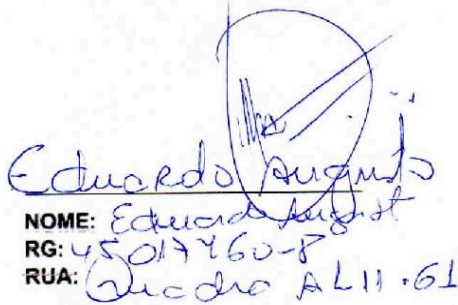 Eduardo Augusto
NOME: Eduardo August
RG: 45017460-8
RUA: Quadra AL11.61